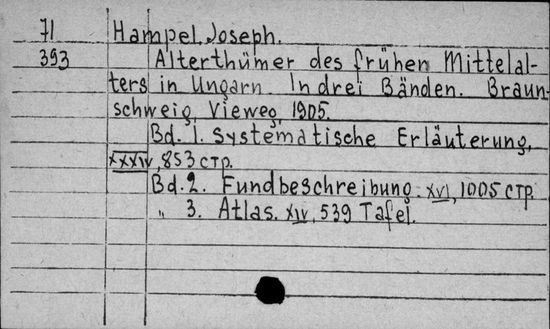 71 Hampel, Joseph.
393 Alterthümer des frühen Mittelal-
ters in Ungarn. In drei Bänden. Braun-
schweig, Vieweg, 1905.
Bd. 1. Systematische Erläuterung,
XXXIV, 853 стр.
Bd. 2. Fundbeschreibung. XVI, 1005 стр.
„ 3. Atlas. XIV, 539 Tafel.